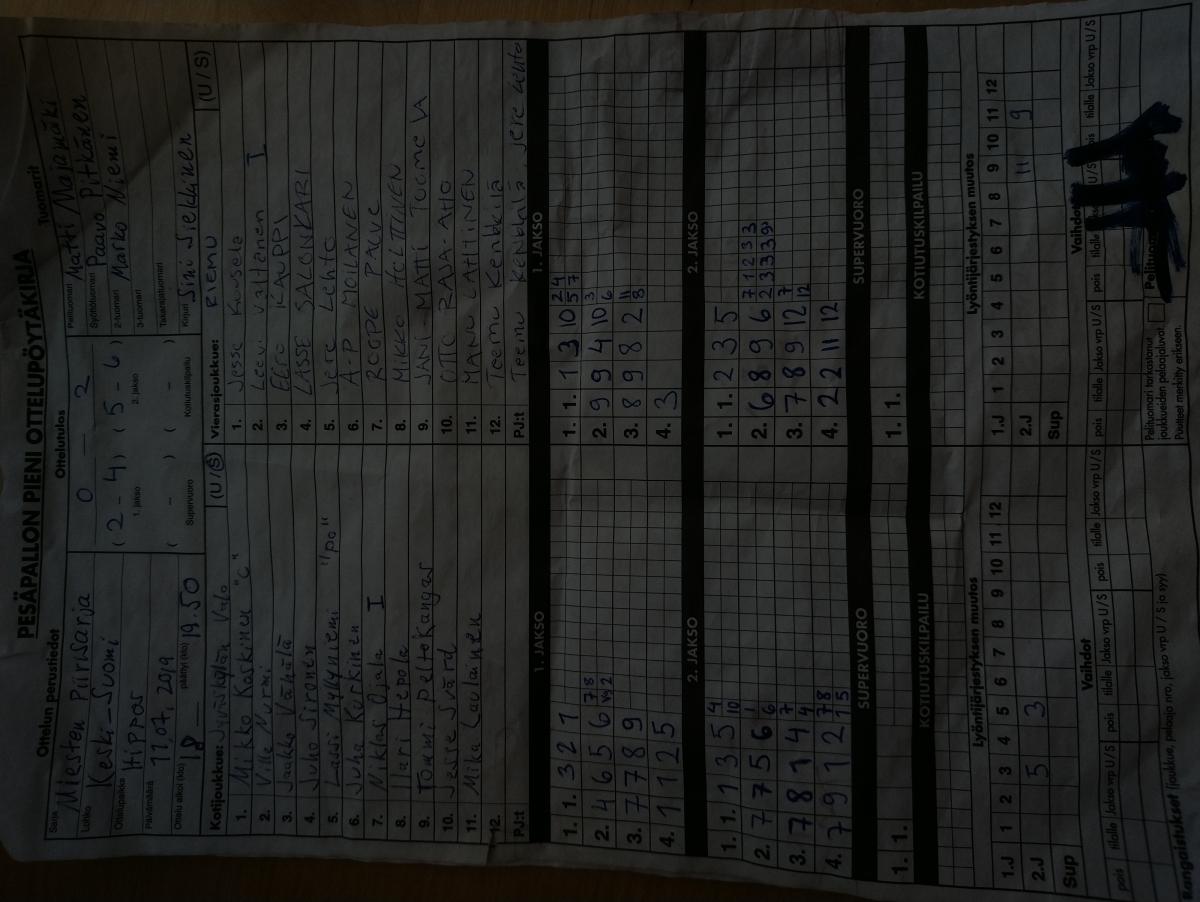 PESÄPALLON PIENI OTTELUPÖYTÄKIRJA
Ottelun perustiedot
Ottelutulos
Tuomarit
Sarja Miesten Piirisarja
Lohko Keski-Suomi
Ottelupaikka Hippos
Päivämäärä 11,07, 2019
Ottelu alkoi (klo) 18 päättyi (klo) 19.50
0 - 2
(2 - 4) (5 - 6)
1. jakso 2. jakso
( - ) ( - )
Supervuoro Kotiutuskilpailu
Pelituomari Matti Majamäki
Syöttötuomari Paavo Pitkänen
2-tuomari Marko Niemi
3-tuomari
Takarajatuomari
Kirjuri Sini Siekkinen
Kotijoukkue: Jyväskylän Valo (U/S)
1. Mikko Kaskinen "C"
2. Ville Nurmi
3. Jaakko Vähälä
4. Juho Sironen
5. Lassi Myllyniemi "po"
6. Juha Korkinen
7. Niklas Ojala I
8. Harri Hepola
9. Tommi Peltokangas
10. Jesse Svärd
11. Mika Laulainen
12.
PJ:t
Vierasjoukkue: RIEMU (U/S)
1. Jesse Kuusela
2. Leevi Valtanen I
3. EERO KAUPPI
4. LASSE SALONKARI
5. Jere Lehto
6. A-P MOILANEN
7. ROOPE PALVE
8. MIKKO
9. JANI-MATTI
10. OTTO RAJA-AHO
11. MANU LAITINEN
12. Teemu Kenkkilä
PJ:t Teemu Kenkkilä, Jere Lehto
1. JAKSO 1. JAKSO
1. 1. 3 2 1
2. 4 6 5 6 7 8
3. 7 7 8 9
4. 1 1 2 5
1. 1. 1 3 10 5 7 2 4
2. 9 9 4 10 6 3
3. 8 9 8 2 8 11
4. 3
2. JAKSO 2. JAKSO
1. 1. 1 3 5 4 10
2. 7 7 5 6 1 6
3. 7 8 1 4 7 4
4. 7 9 1 2 1 5 7 8
1. 1. 2 3 5
2. 6 8 9 6 7 1 2 3 3
3. 7 8 9 12 7 12
4. 2 2 11 12
SUPERVUORO SUPERVUORO
1. 1. 1. 1.
KOTIUTUSKILPAILU KOTIUTUSKILPAILU
Lyöntijärjestyksen muutos Lyöntijärjestyksen muutos
1.J 1 2 3 4 5 6 7 8 9 10 11 12
2.J 5 3
Sup
1.J 1 2 3 4 5 6 7 8 9 10 11 12
2.J 11 9
Sup
Vaihdot Vaihdot
pois tilalle Jakso vrp U/S pois tilalle Jakso vrp U/S pois tilalle Jakso vrp U/S
pois tilalle Jakso vrp U/S pois tilalle Jakso vrp U/S pois tilalle Jakso vrp U/S
Rangaistukset (joukkue, pelaaja nro, jakso vrp U / S ja syy)
Pelituomari tarkastanut
joukkueiden pelaajaluvat
Puutteet merkitty erikseen.